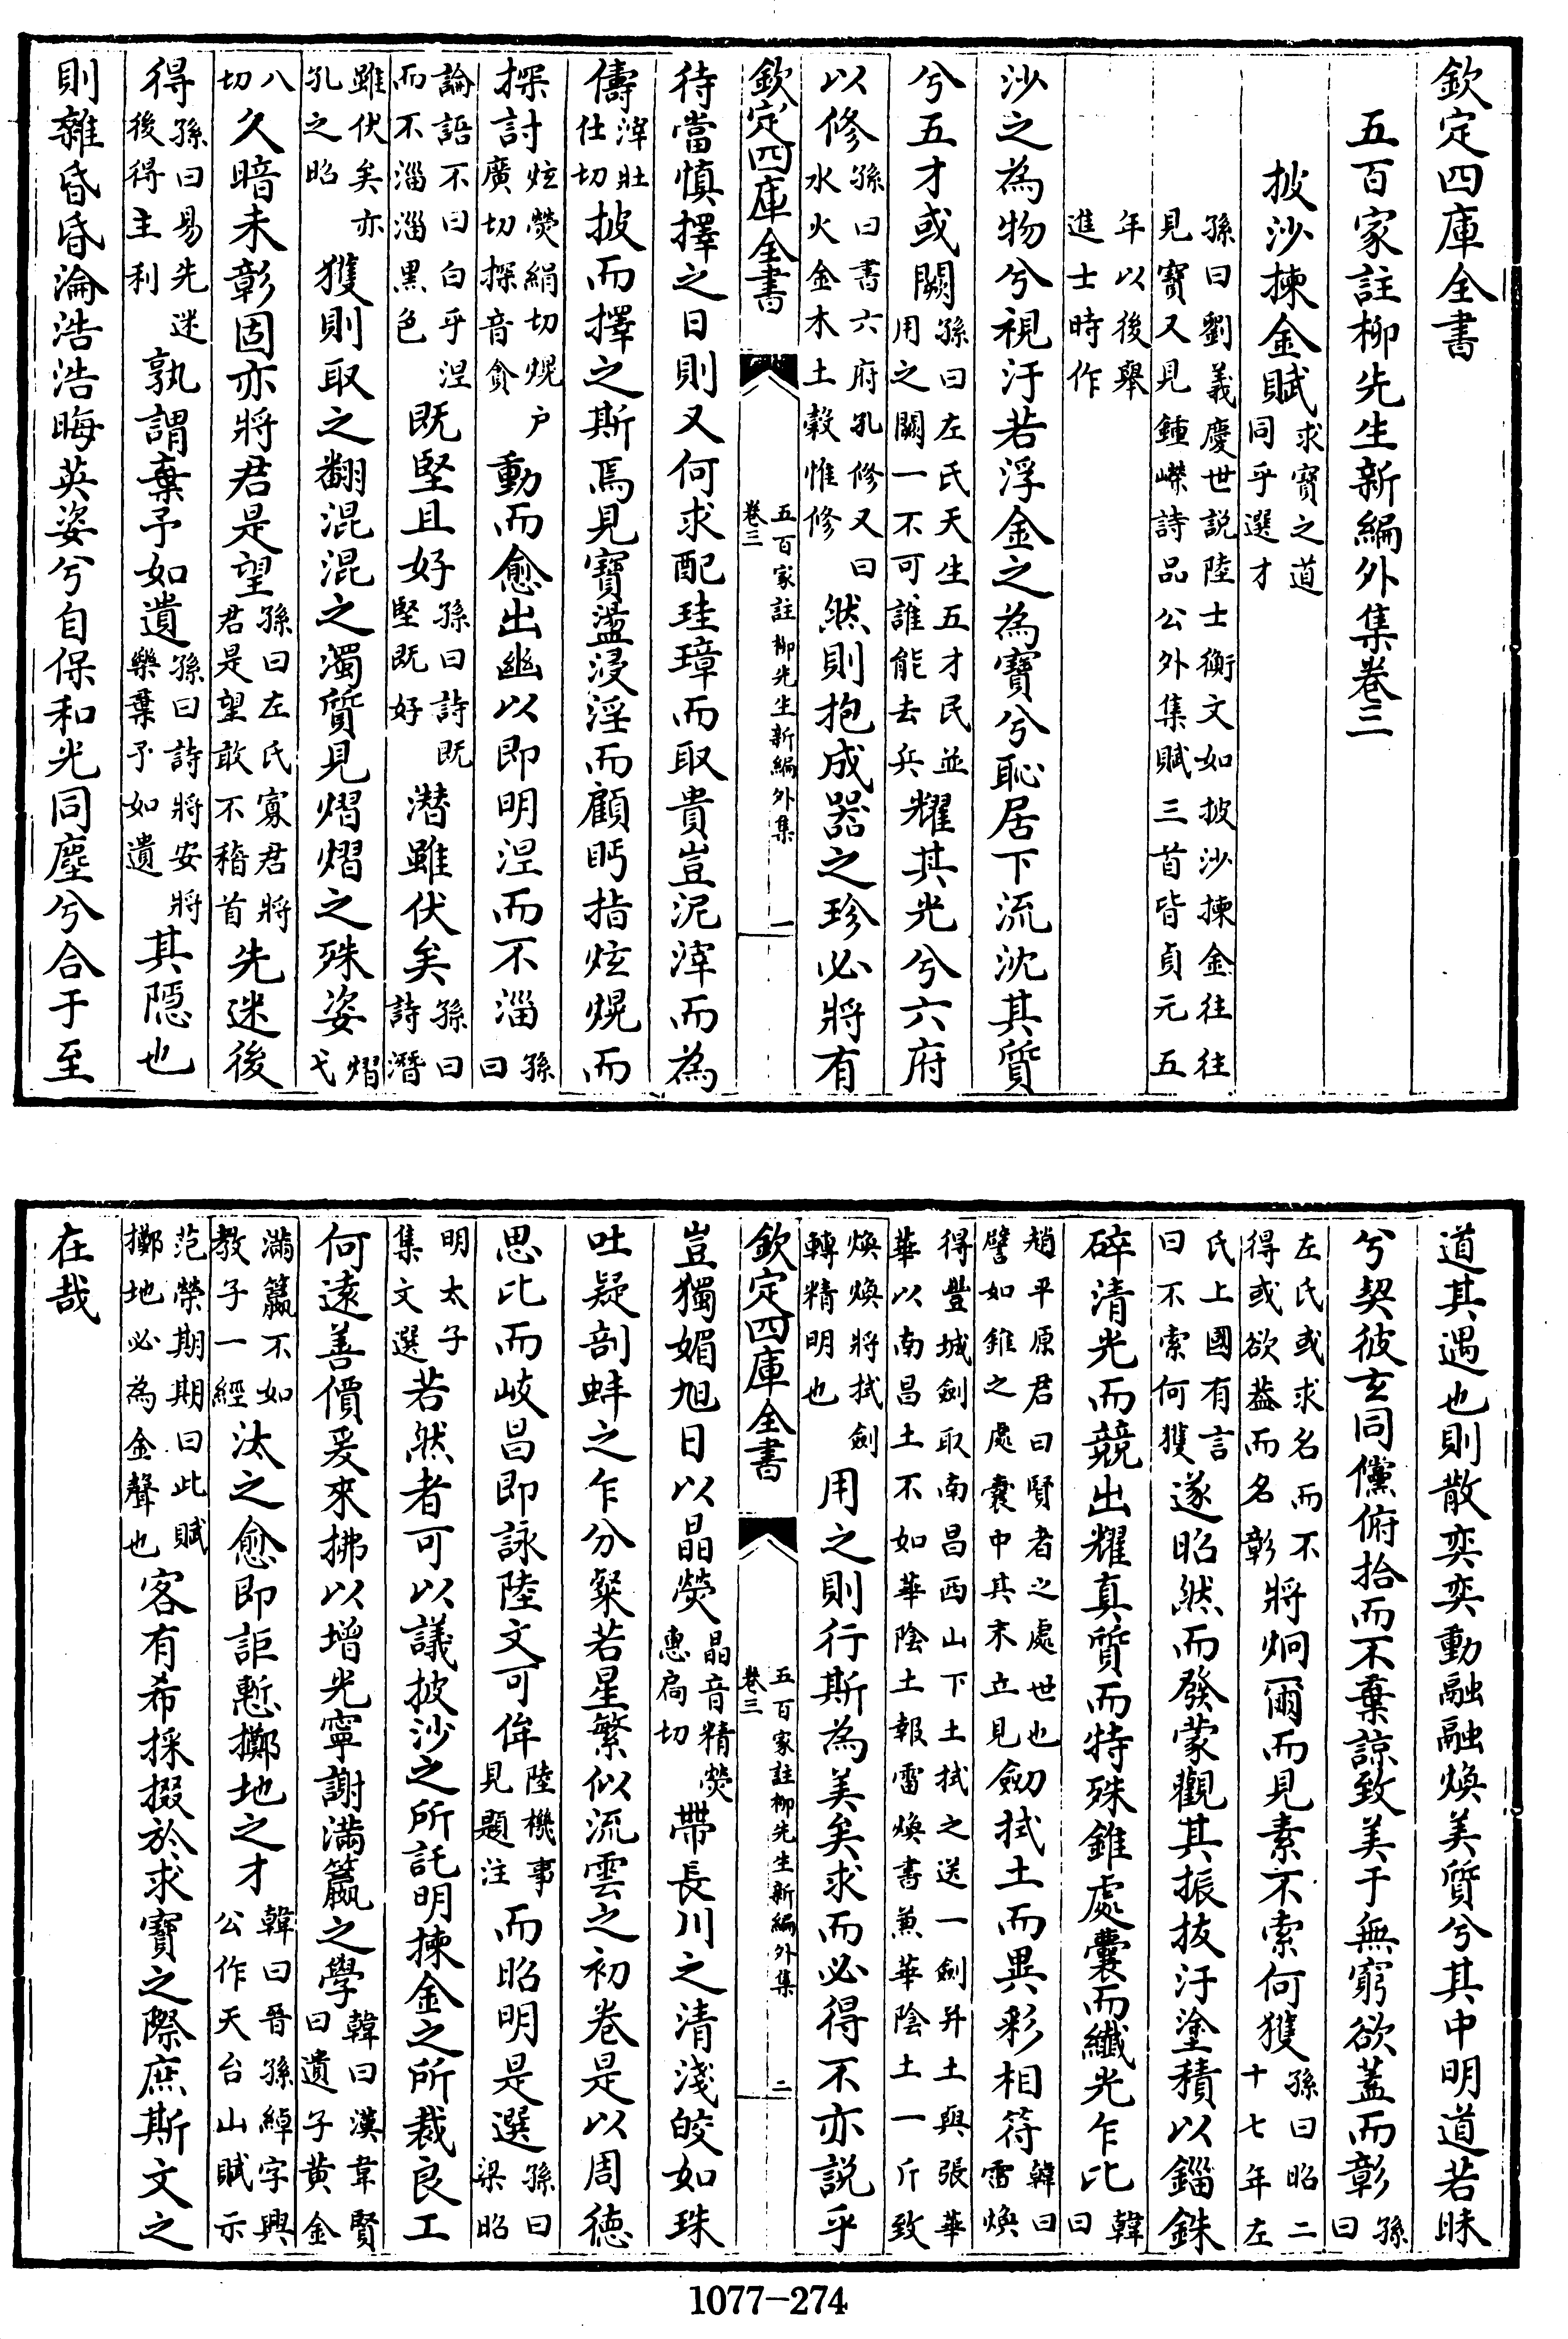 欽定四庫全書
五百家註柳先生新編外集卷三
披沙揀金賦求寶之道同乎選才
孫曰劉義慶世説陸士衡文如披沙揀金往往見寶又見鍾嶸詩品公外集賦三首皆貞元五
年以後舉進士時作
沙之為物兮視汙若浮金之為寶兮恥居下流沈其質
兮五才或闕孫曰左氏天生五才民並用之闕一不可誰能去兵耀其光兮六府
以修孫曰書六府孔修又曰水火金木土穀惟修然則抱成器之珍必將有
欽定四庫全書 五百家註柳先生新編外集卷三 一
待當慎擇之日則又何求配珪璋而取貴豈泥滓而為
儔滓壯仕切披而擇之斯焉見寶盪浸淫而顧眄指炫熀而
探討炫熒絹切熀户廣切探音貪動而愈出幽以即明涅而不淄孫曰
論語不曰白乎涅而不淄淄黑色既堅且好孫曰詩既堅既好潛雖伏矣孫曰詩潛
雖伏矣亦孔之昭獲則取之翻混混之濁質見熠熠之殊姿熠弋
八切久暗未彰固亦將君是望孫曰左氏寡君將君是望敢不稽首先迷後
得孫曰易先迷後得主利孰謂棄予如遺孫曰詩將安將樂棄予如遺其隱也
則雜昏昏淪浩浩晦英姿兮自保和光同塵兮合于至
道其遇也則散奕奕動融融煥美質兮其中明道若昧
兮契彼玄同儻俯拾而不棄諒致美于無窮欲蓋而彰孫曰
左氏或求名而不得或欲葢而名彰將炯爾而見素不索何獲孫曰昭二十七年左
氏上國有言曰不索何獲遂昭然而發蒙觀其振抜汙塗積以錙銖
碎清光而競出耀真質而特殊錐處囊而纖光乍比韓曰
趙平原君曰賢者之處世也譬如錐之處囊中其末立見劒拭土而異彩相符韓曰雷煥
得豐城劍取南昌西山下土拭之送一劍并土與張華華以南昌土不如華陰土報雷煥書兼華陰土一斤致
煥煥將拭劍轉精明也用之則行斯為美矣求而必得不亦説乎
欽定四庫全書 五百家註柳先生新編外集卷三 二
豈獨媚旭日以晶熒晶音精熒惠扃切帶長川之清淺皎如珠
吐疑剖蚌之乍分粲若星繁似流雲之初卷是以周德
思比而岐昌即詠陸文可侔陸機事見題注而昭明是選孫曰梁昭
明太子集文選若然者可以議披沙之所託明揀金之所裁良工
何遠善價爰來拂以增光寧謝滿籯之學韓曰漢韋賢曰遺子黄金
滿籯不如教子一經汰之愈即詎慙擲地之才韓曰晉孫綽字興公作天台山賦示
范榮期期曰此賦擲地必為金聲也客有希採掇於求寶之際庶斯文之
在哉
1077-274